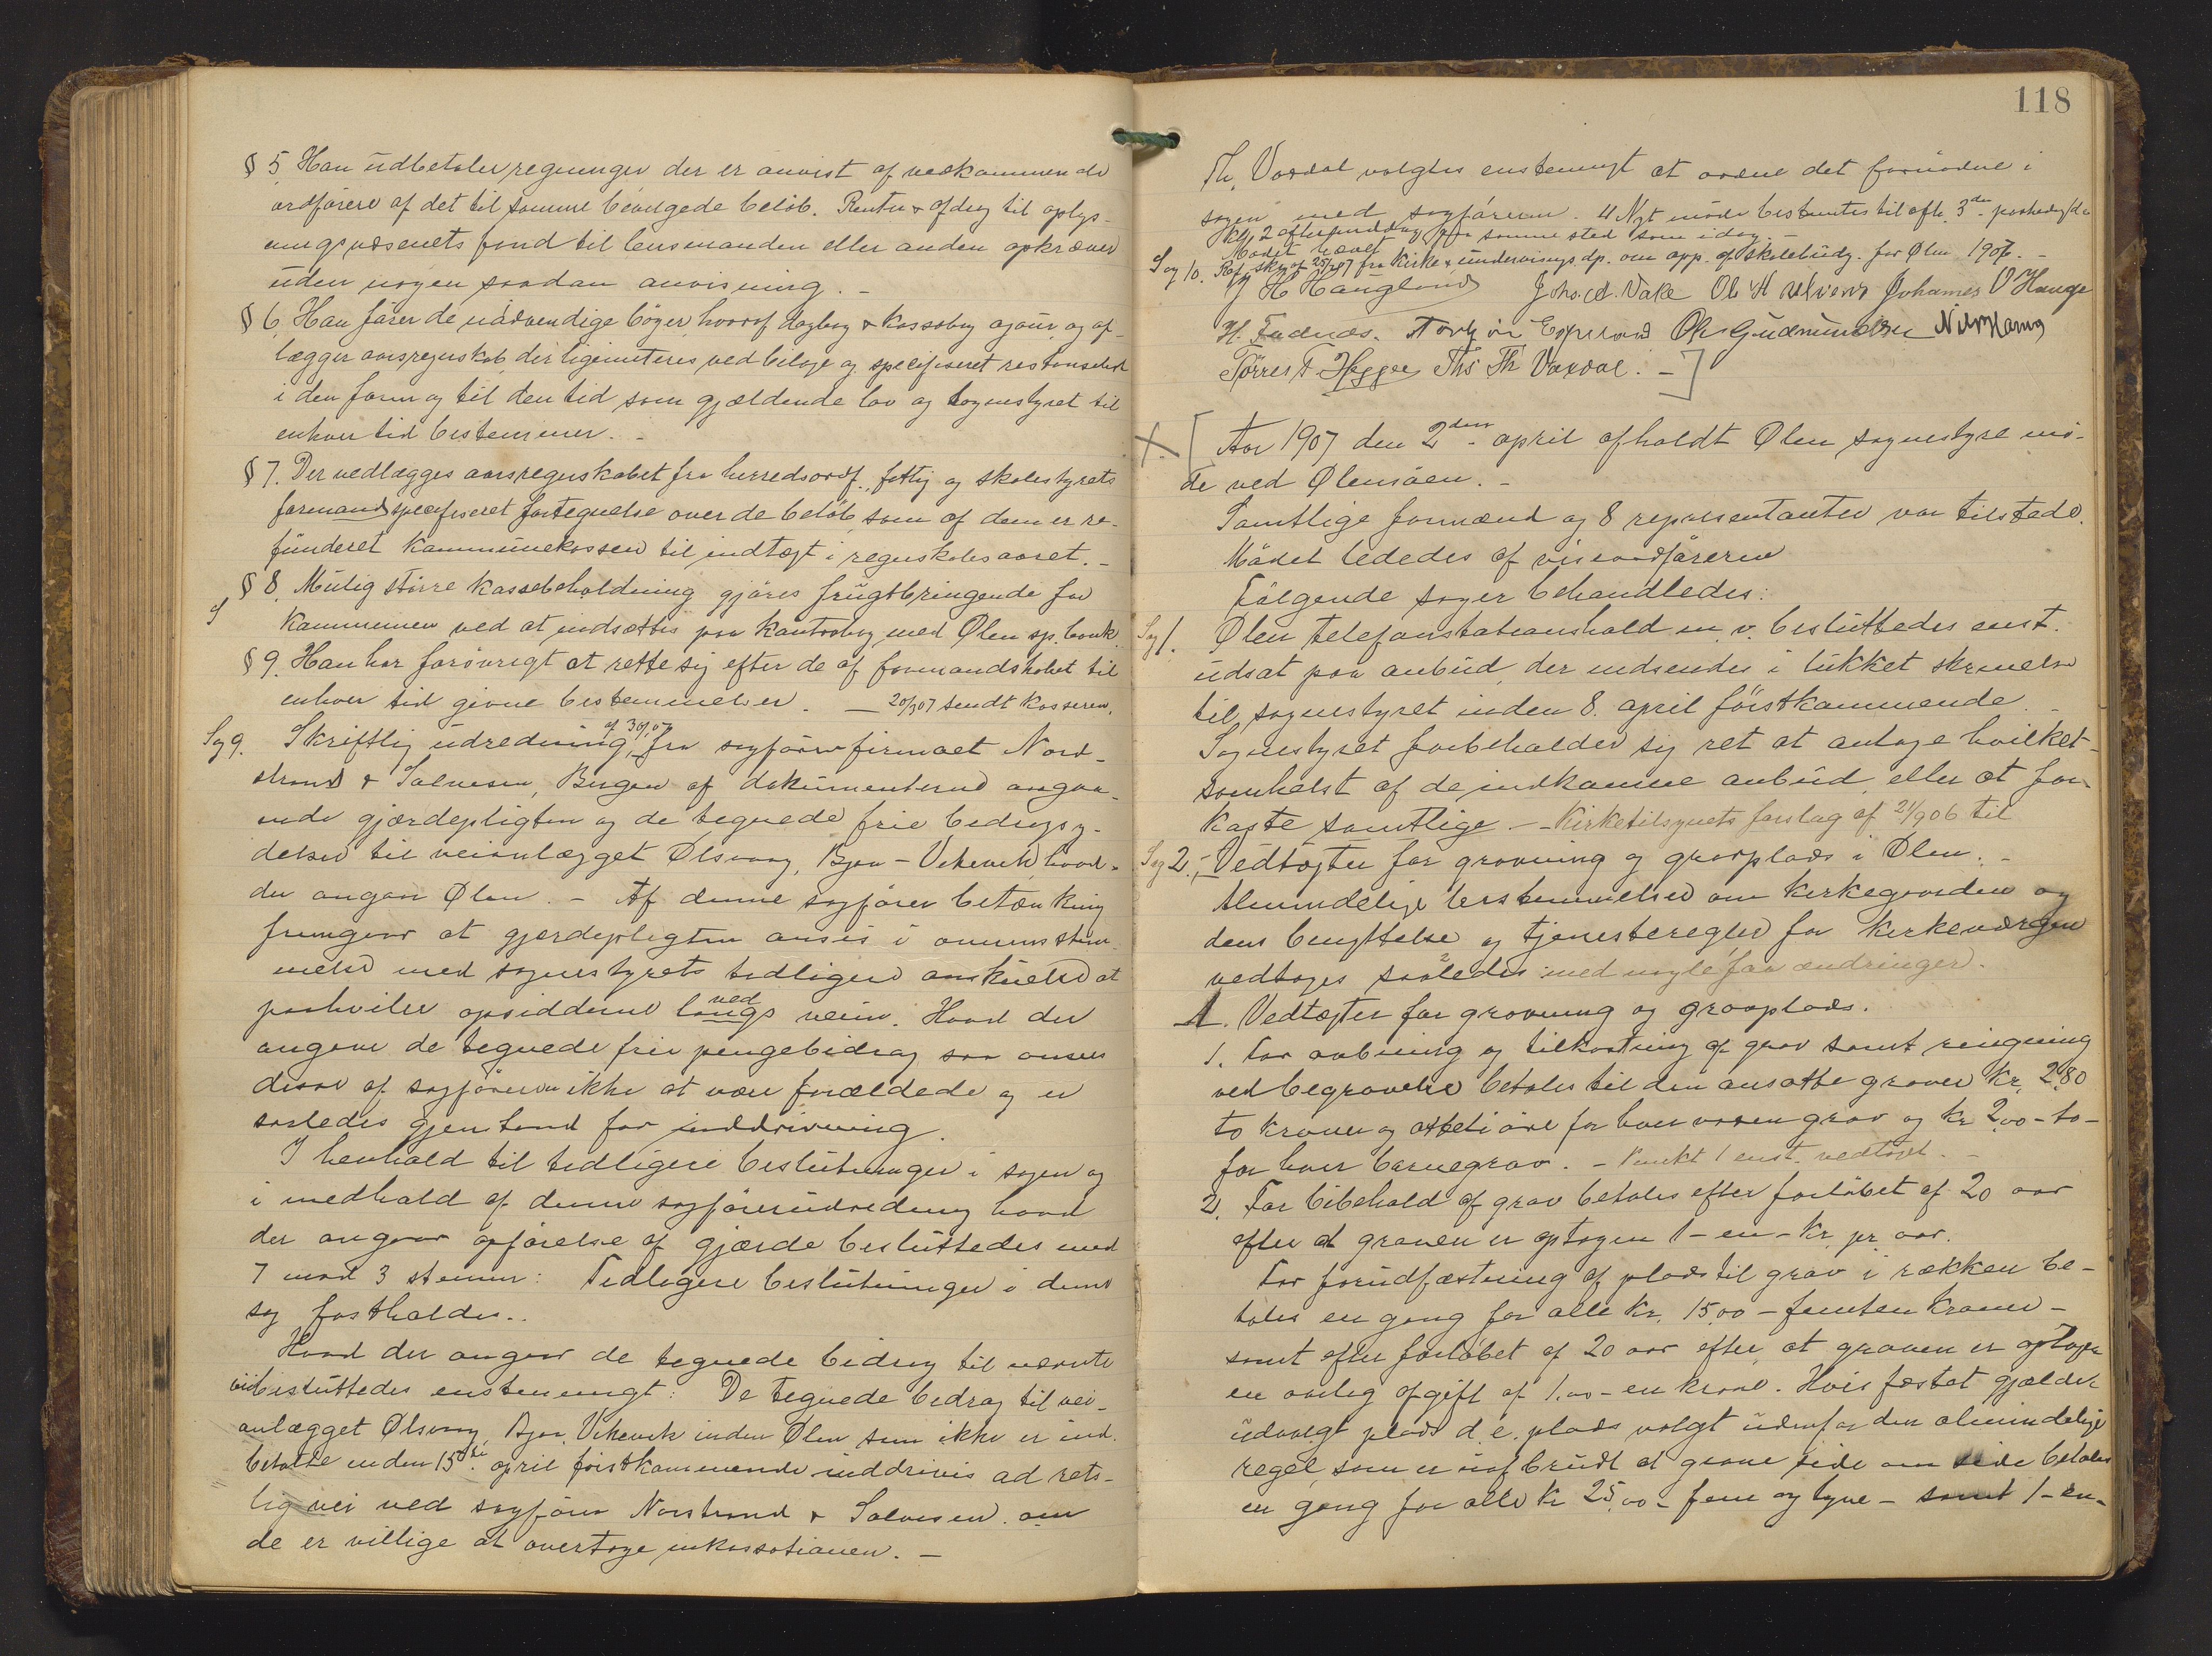 § 5. Han udbetaler regninger der er anvist af vedkommende
ordförere af det til samme bevilgede belöb. Renter & afdrag til oplys-
ningsvæsenets fond til lensmanden eller anden opkræver
uden nogen saadan anvisning. -
§ 6. Han förer de nödvendige böger hvoraf dagbog & kassabog ajour, og af-
lægger aarsregnskab der ligimiteres ved bilage og specifiseret restanseliste
i den form og til den tid som gjældende lov og sognestyret til
enhver tid bestemmer. -
§ 7. Der vedlægges aarsregnskabet fra herredsordf., fattig og skolestyrets
formand specifiseret fortegnelse over de belöb som af dem er re-
funderet kommunekassen til indtægt i regnskabsaaret. -
§ 8. Mulig större kassebeholdning gjöres frugtbringende for
kommunen ved at indsættes paa kontrabog med Ølen sp. bank.
§ 9. Han har forövrigt at rette sig efter de af formandskabet til
enhver tid givne bestemmelser. — 20/3 07 sendt kasseren.
Sag 9. Skriftlig udredning af 30/1 07 fra sagförerfirmaet Nord-
strand & Salvesen, Bergen af dokumenterne angaa-
ende gjærdepligten og de tegnede frie bedragy-
delser til veianlægget Ølsvaag, Bjoa - Vikevik, hvad-
der angaar Ølen. - Af denne sagförer betænkning
fremgaar at gjærdepligten ansees i overensstem-
melse med sognestyrets tidligere anskuelse at
paahvile opsidderne langs ved veien. Hvad der
angaar de tegnede frie pengebidrag saa ansees
disse af sagföreren ikke at være forældede og er
saaledes gjenstand for inddrivning.
I henhold til tidligere beslutninger i sagen og
i medhold af denne sagförerudredning hvad
der angaar opförelse af gjærde besluttedes med
7 mod 3 stemmer: Tidligere beslutninger i denne
sag fastholdes.
Hvad der angaar de tegnede bidrag til nævnte
vei besluttedes enstemmigt: De tegnede bidrag til vei-
anlægget Ølsvaag, Bjoa, Vikevik inden Ølen som ikke er ind-
betalte inden 15de april förstkommende inddrives ad rets-
lig vei ved sagförer Norstrand & Salvesen om
de er villige at overtage inkassationen. -
118
Th. Vaxdal valgtes enstemmigt at ordne det fornödne i
sagen med sagföreren. 4 Nyt möde bestemtes til afh. 3die paaskedag
Kl. 2 eftermiddag paa samme sted som idag. -
Mödet hævet
Sag 10. Ref. skr. af 25/2 07 fra Kirke & undervisnings dp. om app. af skolebudg. for Ølen 1907. -
H Haugland Johs. A. Vake Ol H Johannes O Hauge
H. Fadnæs. Ole Gudmundsen
Tørres T. Hegge Ths Th Vaxdal. -
X. [ Aar 1907 den 2den april afholdt Ølen sognestyre mö-
de ved Ølensöen. -
Samtlige formænd og 8 repræsentanter var tilstede.
Mödet lededes af viseordföreren
Fölgende sager behandledes:
Sag 1. Ølen telefonstationshold m. v. besluttedes enst.
udsat paa anbud, der indsendes i lukket skrivelse
til sognestyret inden 8. april förstkommende. -
Sognestyret forbeholder sig ret at antage hvilket-
somhelst af de indkomne anbud, eller at for-
kaste samtlige. - Kirketilsynets forslag af 2/1 906 til
Sag 2. Vedtægter for gravning og gravplads i Ølen. -
Almindelige bestemmelser om kirkegaarden og
dens benyttelse og tjenesteregler for kirkeværgen
vedtoges saaledes: med nogle faa ændringer.
A. Vedtægter for gravning og gravplads.
1. For aabning og tilkastning af grav samt ringning
ved begravelse betales til den ansatte graver Kr. 2.80
to kroner og otteti öre for hver voxen grav og kr 2,00 - to -
for hver barnegrav. - Punkt 1 enst. vedtaget. -
2. For bibehold af grav betales efter forlöbet af 20 aar
efter at graven er optagen 1 - en - Kr. pr. aar.
For forudfæstning af plads til grav i rækken be-
tales en gang for alle Kr. 15,00 - femten kroner -
samt efter forlöbet af 20 aar efter at graven er optagen
en aarlig afgift af 1,00 - en krone. Hvis fæstet gjælder
udvalgt plads d. e. plads valgt udenfor den almindelige
regel som er uafbrudt at grave side om side betales
en gang for alle Kr 25,00 - fem og tyve - samt 1 - en -